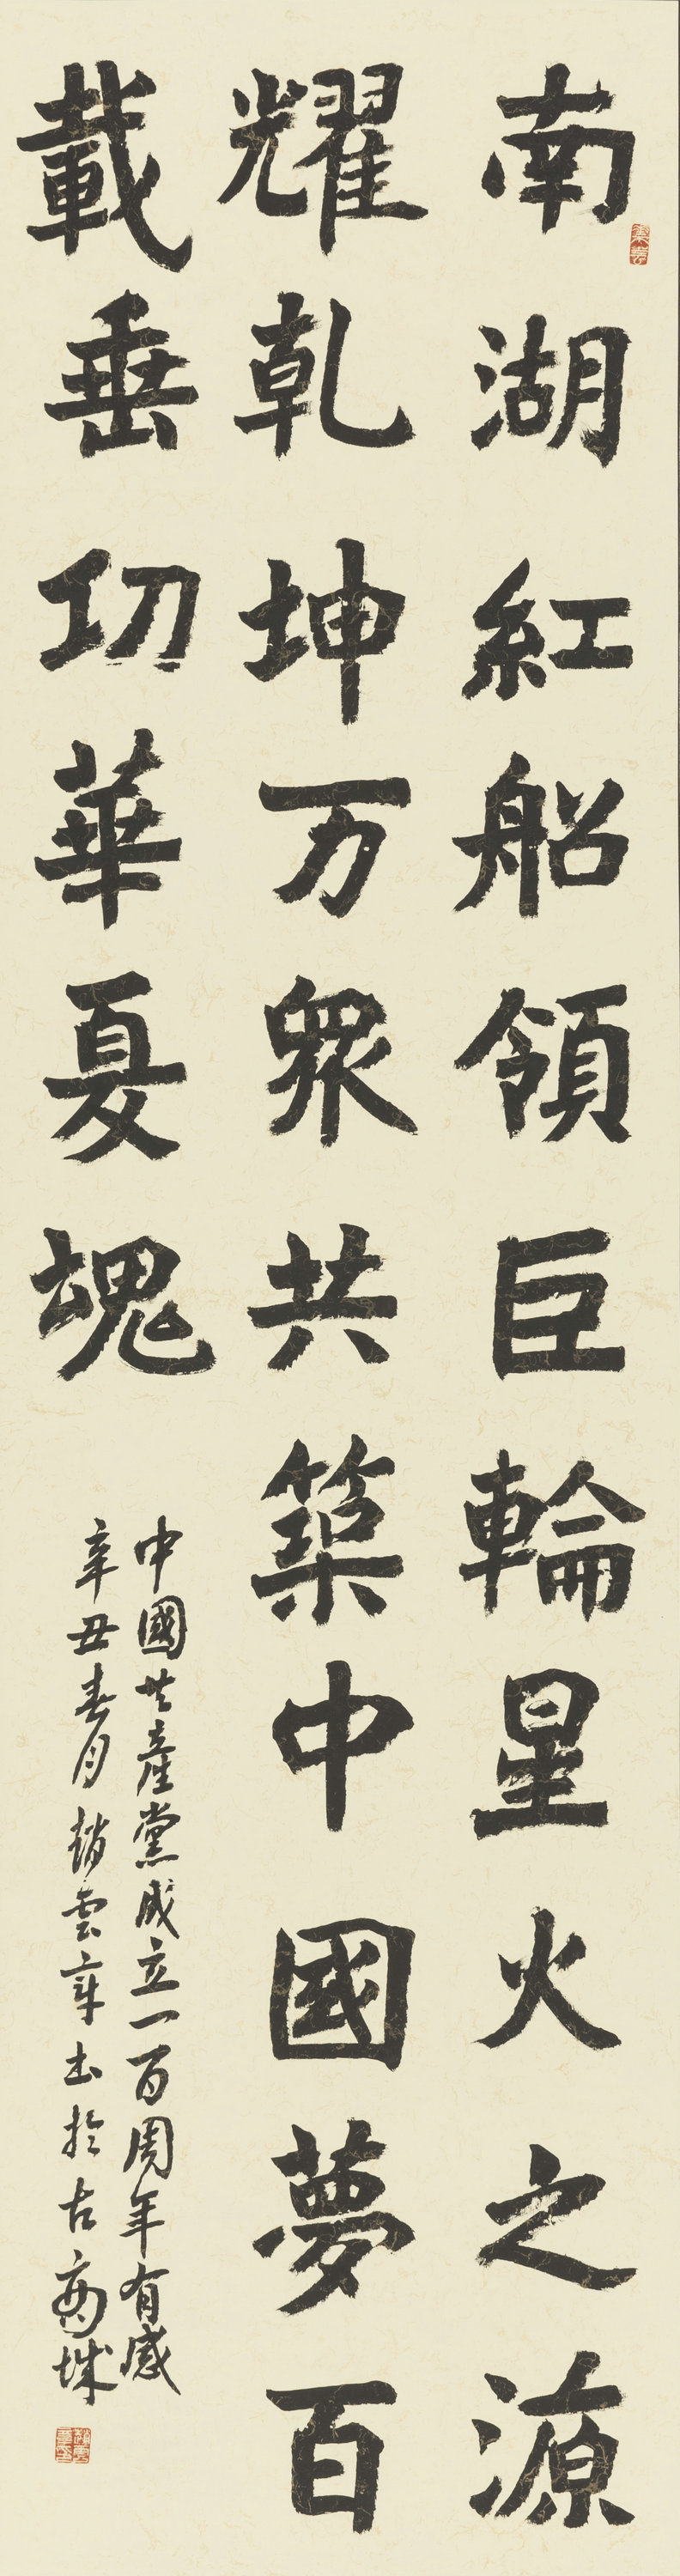 南湖紅船領巨輪星火之源
耀乾坤万眾共築中國夢百
載垂功華夏魂
中國共產黨成立一百周年有感
辛丑春月趙雲章书於古商城